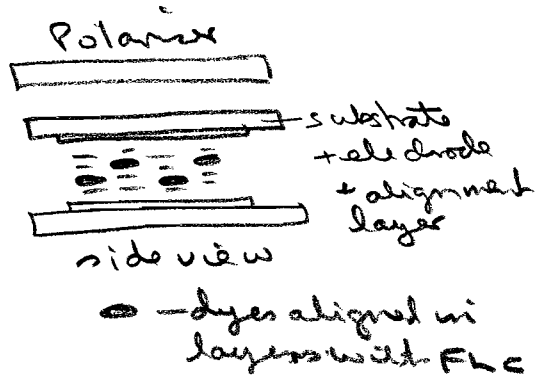 Polarizer
substrate
+ electrode
+ alignment
layer
side view
- dyes aligned in
layers with FLC